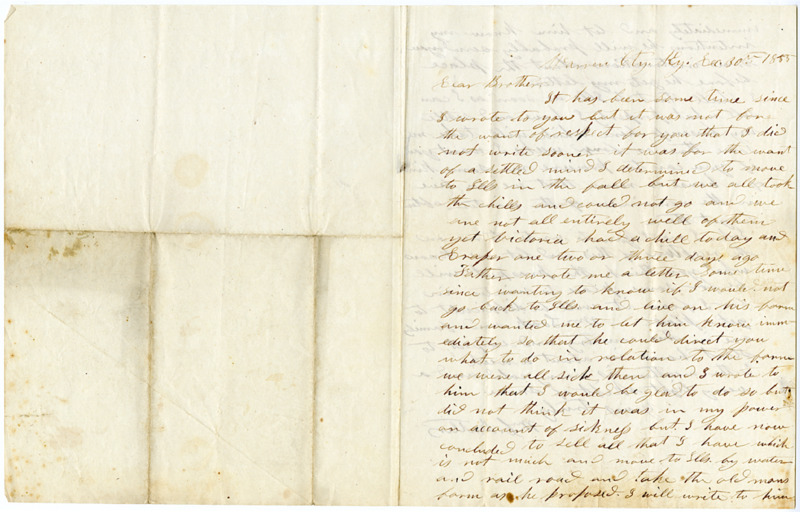 Warren Cty Ky. Dec. 30th 1855
Dear Brother
It has been some time since
I wrote to you but it was not for
the want of respect for you that I did
not write sooner. it was for the want
of a settled mind I determined to move
to Ills in the fall but we all took
the chills and could not go and we
are not all entirely well of them
yet Victoria had a chill today and
Draper one two or three days ago
Father wrote me a letter some time
since wanting to know if I would not
go back to Ills and live on his farm
and wanted me to let him know imm
ediately so that he could direct you
what to do in relation to the farm
we were all sick then and I wrote to
him that I would be glad to do so but
did not think it was in my power
on account of sickness but I have now
concluded to sell all that I have which
is not much and move to Ills by water
and rail road and take the old mans
farm as he proposed. I will write to him